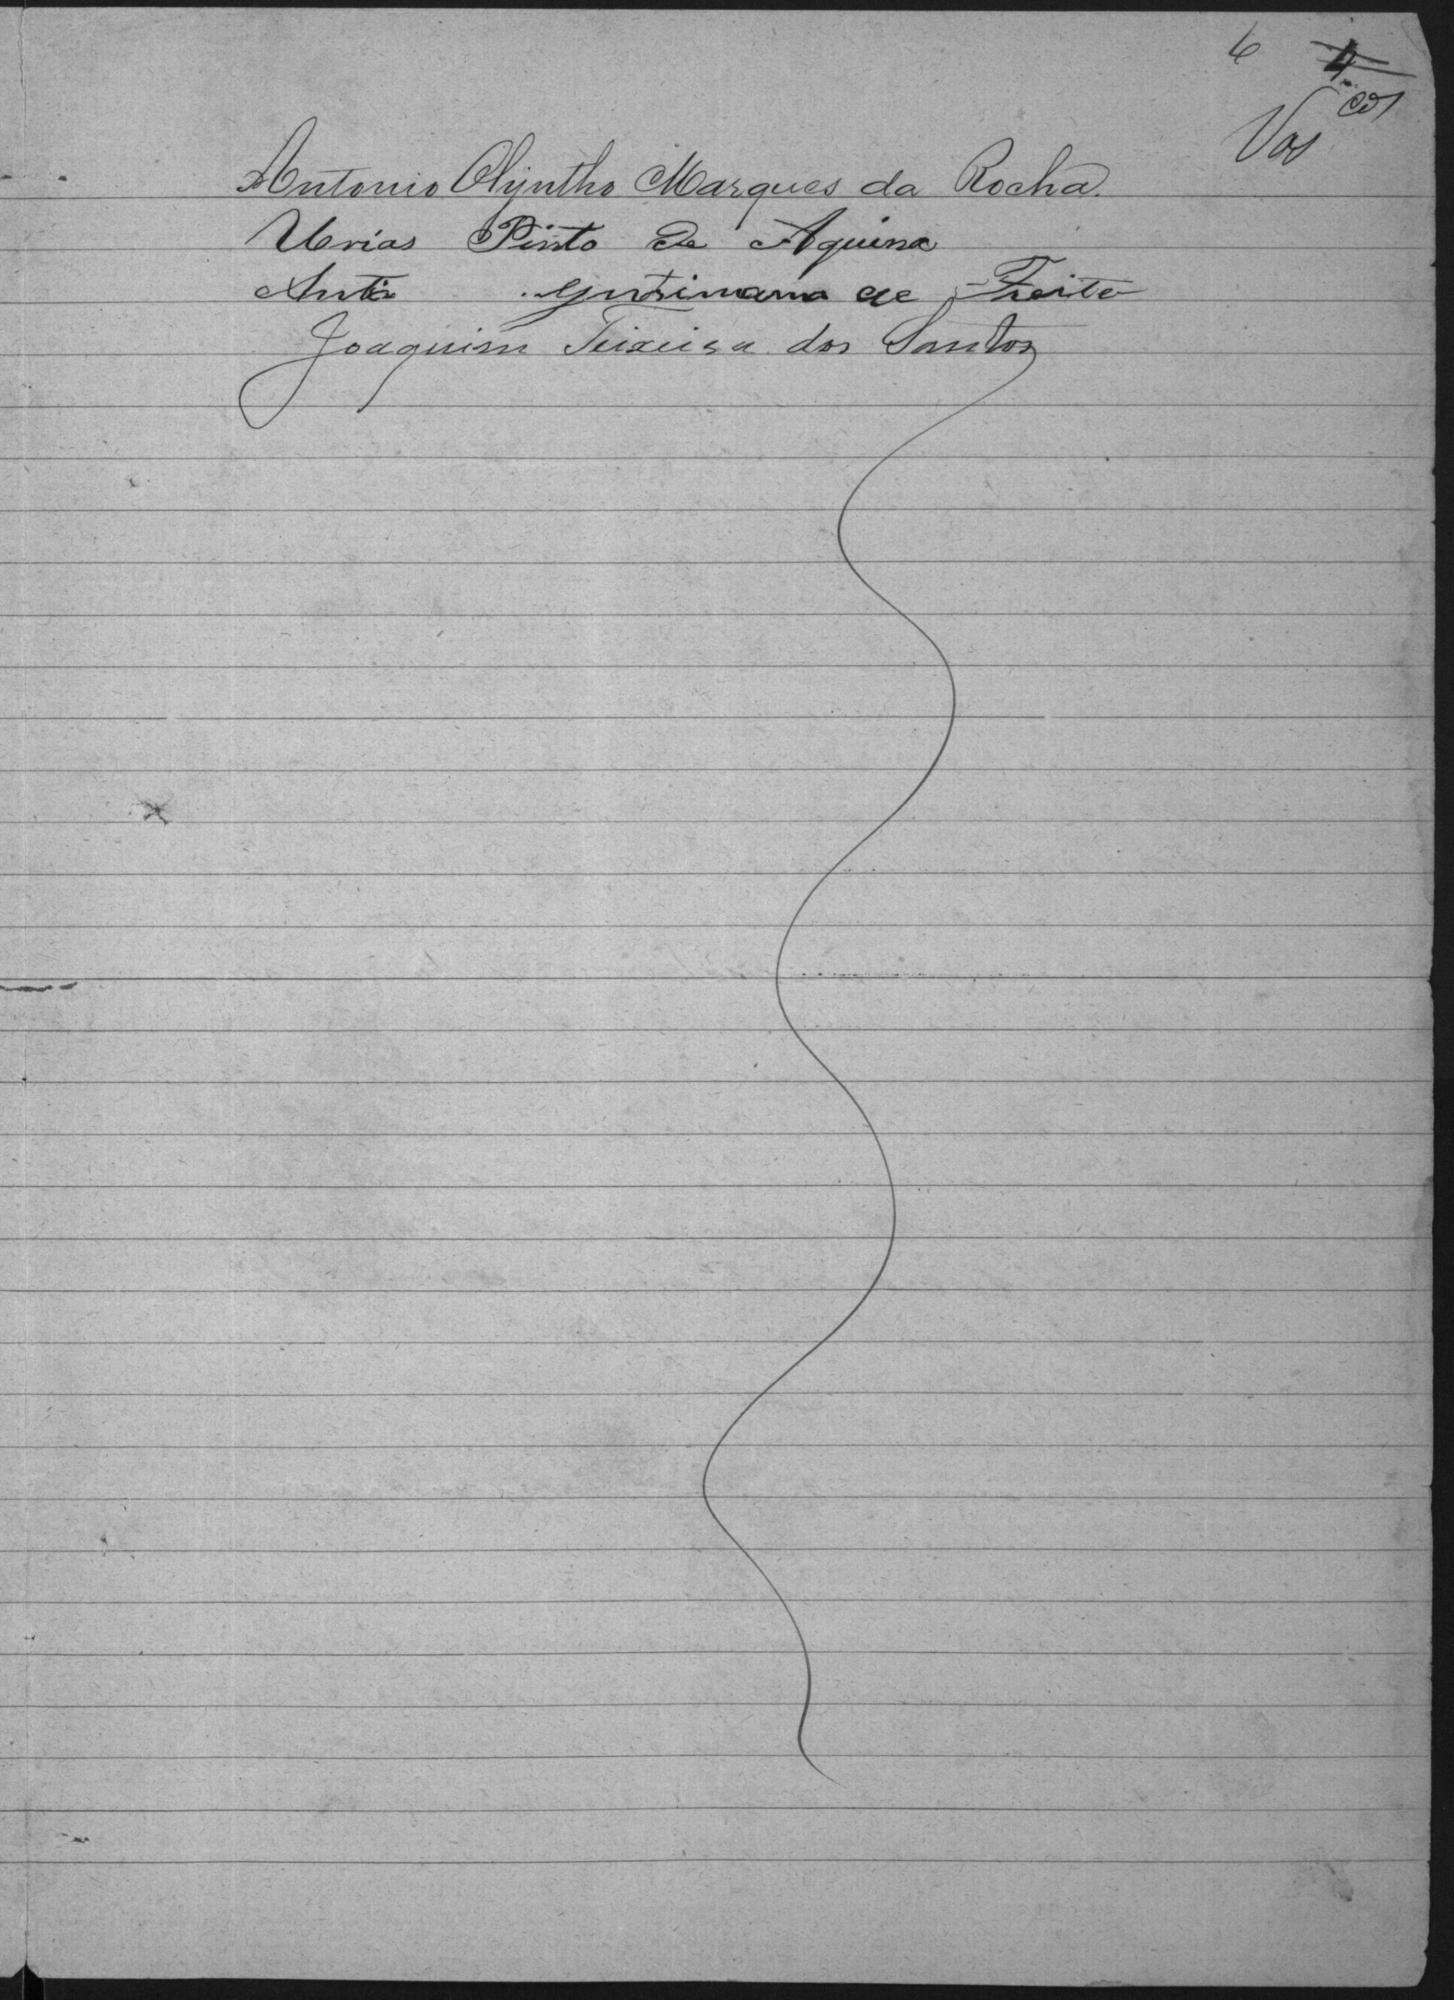 6 4
Vas
Antonio Olyntho Marques da Rocha.
Urias Pinto de Aquino
de Freita
Joaquim Teixeira dos Santos